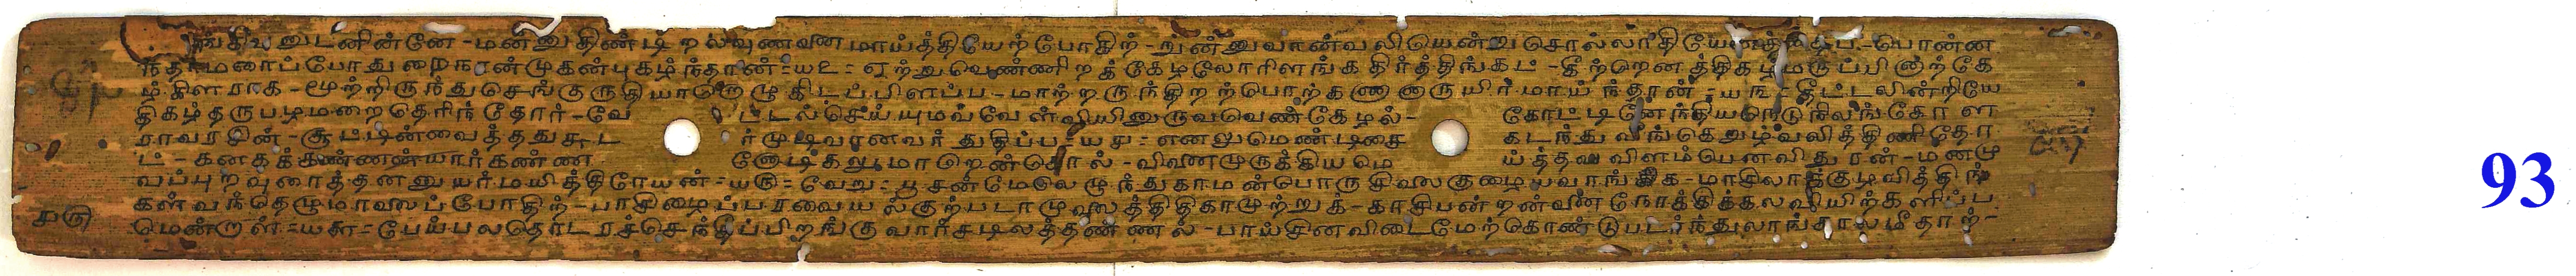 னுடனின்னே - மன்னுதிண்டிறல்வுணவண மாய்த்தியேற்போதிற் - றுன்னுவாண்வலியென்று சொல்லாதியே - பொன்ன
போதுறைநான்முகன்புகழ்ந்தான் = ய௨ = ஏற்றுவெண்ணிறத்கேழலோரிளங்கதிர்த்திங்கட் - கீற்றெனத்திகழ்மருப்பினூற்கே
ழ்கிளராக - மூற்றிருந்துசெங்குருதியாறெழுகிடப்பிளப்ப - மாற்றருந்திறற்பொற்கணானாருயிர்மாய்ந்தான் = ய௩ = தீட்டலின்றியே
திகழ்தருபழமறைதெரிந்தோர் - வே ட்டல்செய்யுமவ்வேள்வியினுருவவெண்கேழல் - கோட்டினேந்தியநெடுநிலங்கோள
ராவரசின் - சூட்டின்வைத்ததுசுட ர்முடிவானவர்துதிப்ப = ய௪ = எனலுமெண்டிசை கடந்துவீங்கெறுழ்வலித்திணிதோ
ட் - கனகக்கண்ணன்யார்கண்ண னோடிகலுமாறென்சொல் - விவணமுருக்கியமெ ய்த்தவ விளம்பெனவிதுரன் - மனமு
வப்புறவுரைத்தனனுயர்மயித்திரேயன் = ய௫ = வேறு = பூசண்மேலெழுந்துகாமன்பொருசிலைகுழையவாங்கிக - மாசிலாக்குழவித்திங்
கள்வந்தெழுமாலைப்போதிற் - பாசிழைப்பரவையல்குற்படாமுலைத்திதிகாமுற்றுக் - காசிபன்றன்னை நோக்கிக்கலவியிற்களிப்ப
மென்றாள் = ய௬ = பேய்பலதொடரச்செந்தீப்பிறங்குவார்சடிலத்தண்ணல் - பாய்சினவிடைமேற்கொண்டுபடர்ந்துலாங்காலமீதாற் -
௪௫
93